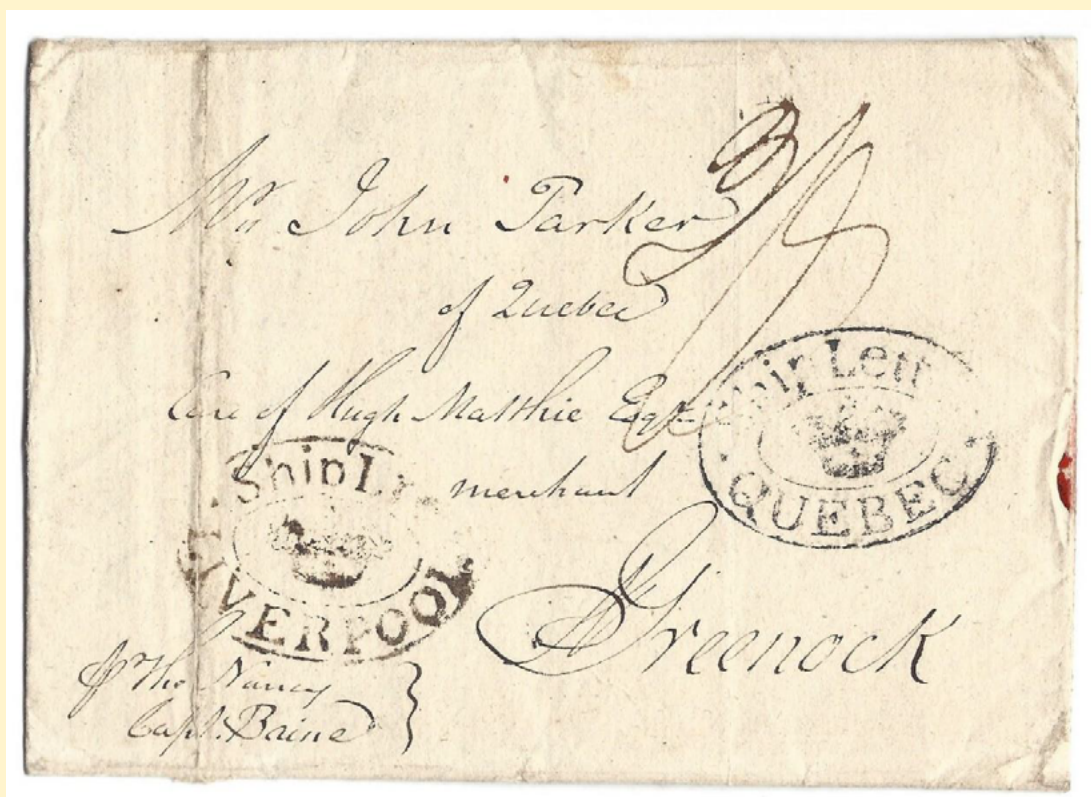 Mr. John Parker
of Quebec
Care of Hugh Matthie Esqr.
merchant
Greenock
Ship Lett
QUEBEC
Ship Le
LIVERPOOL
pr the Nancy
Capt. Baine